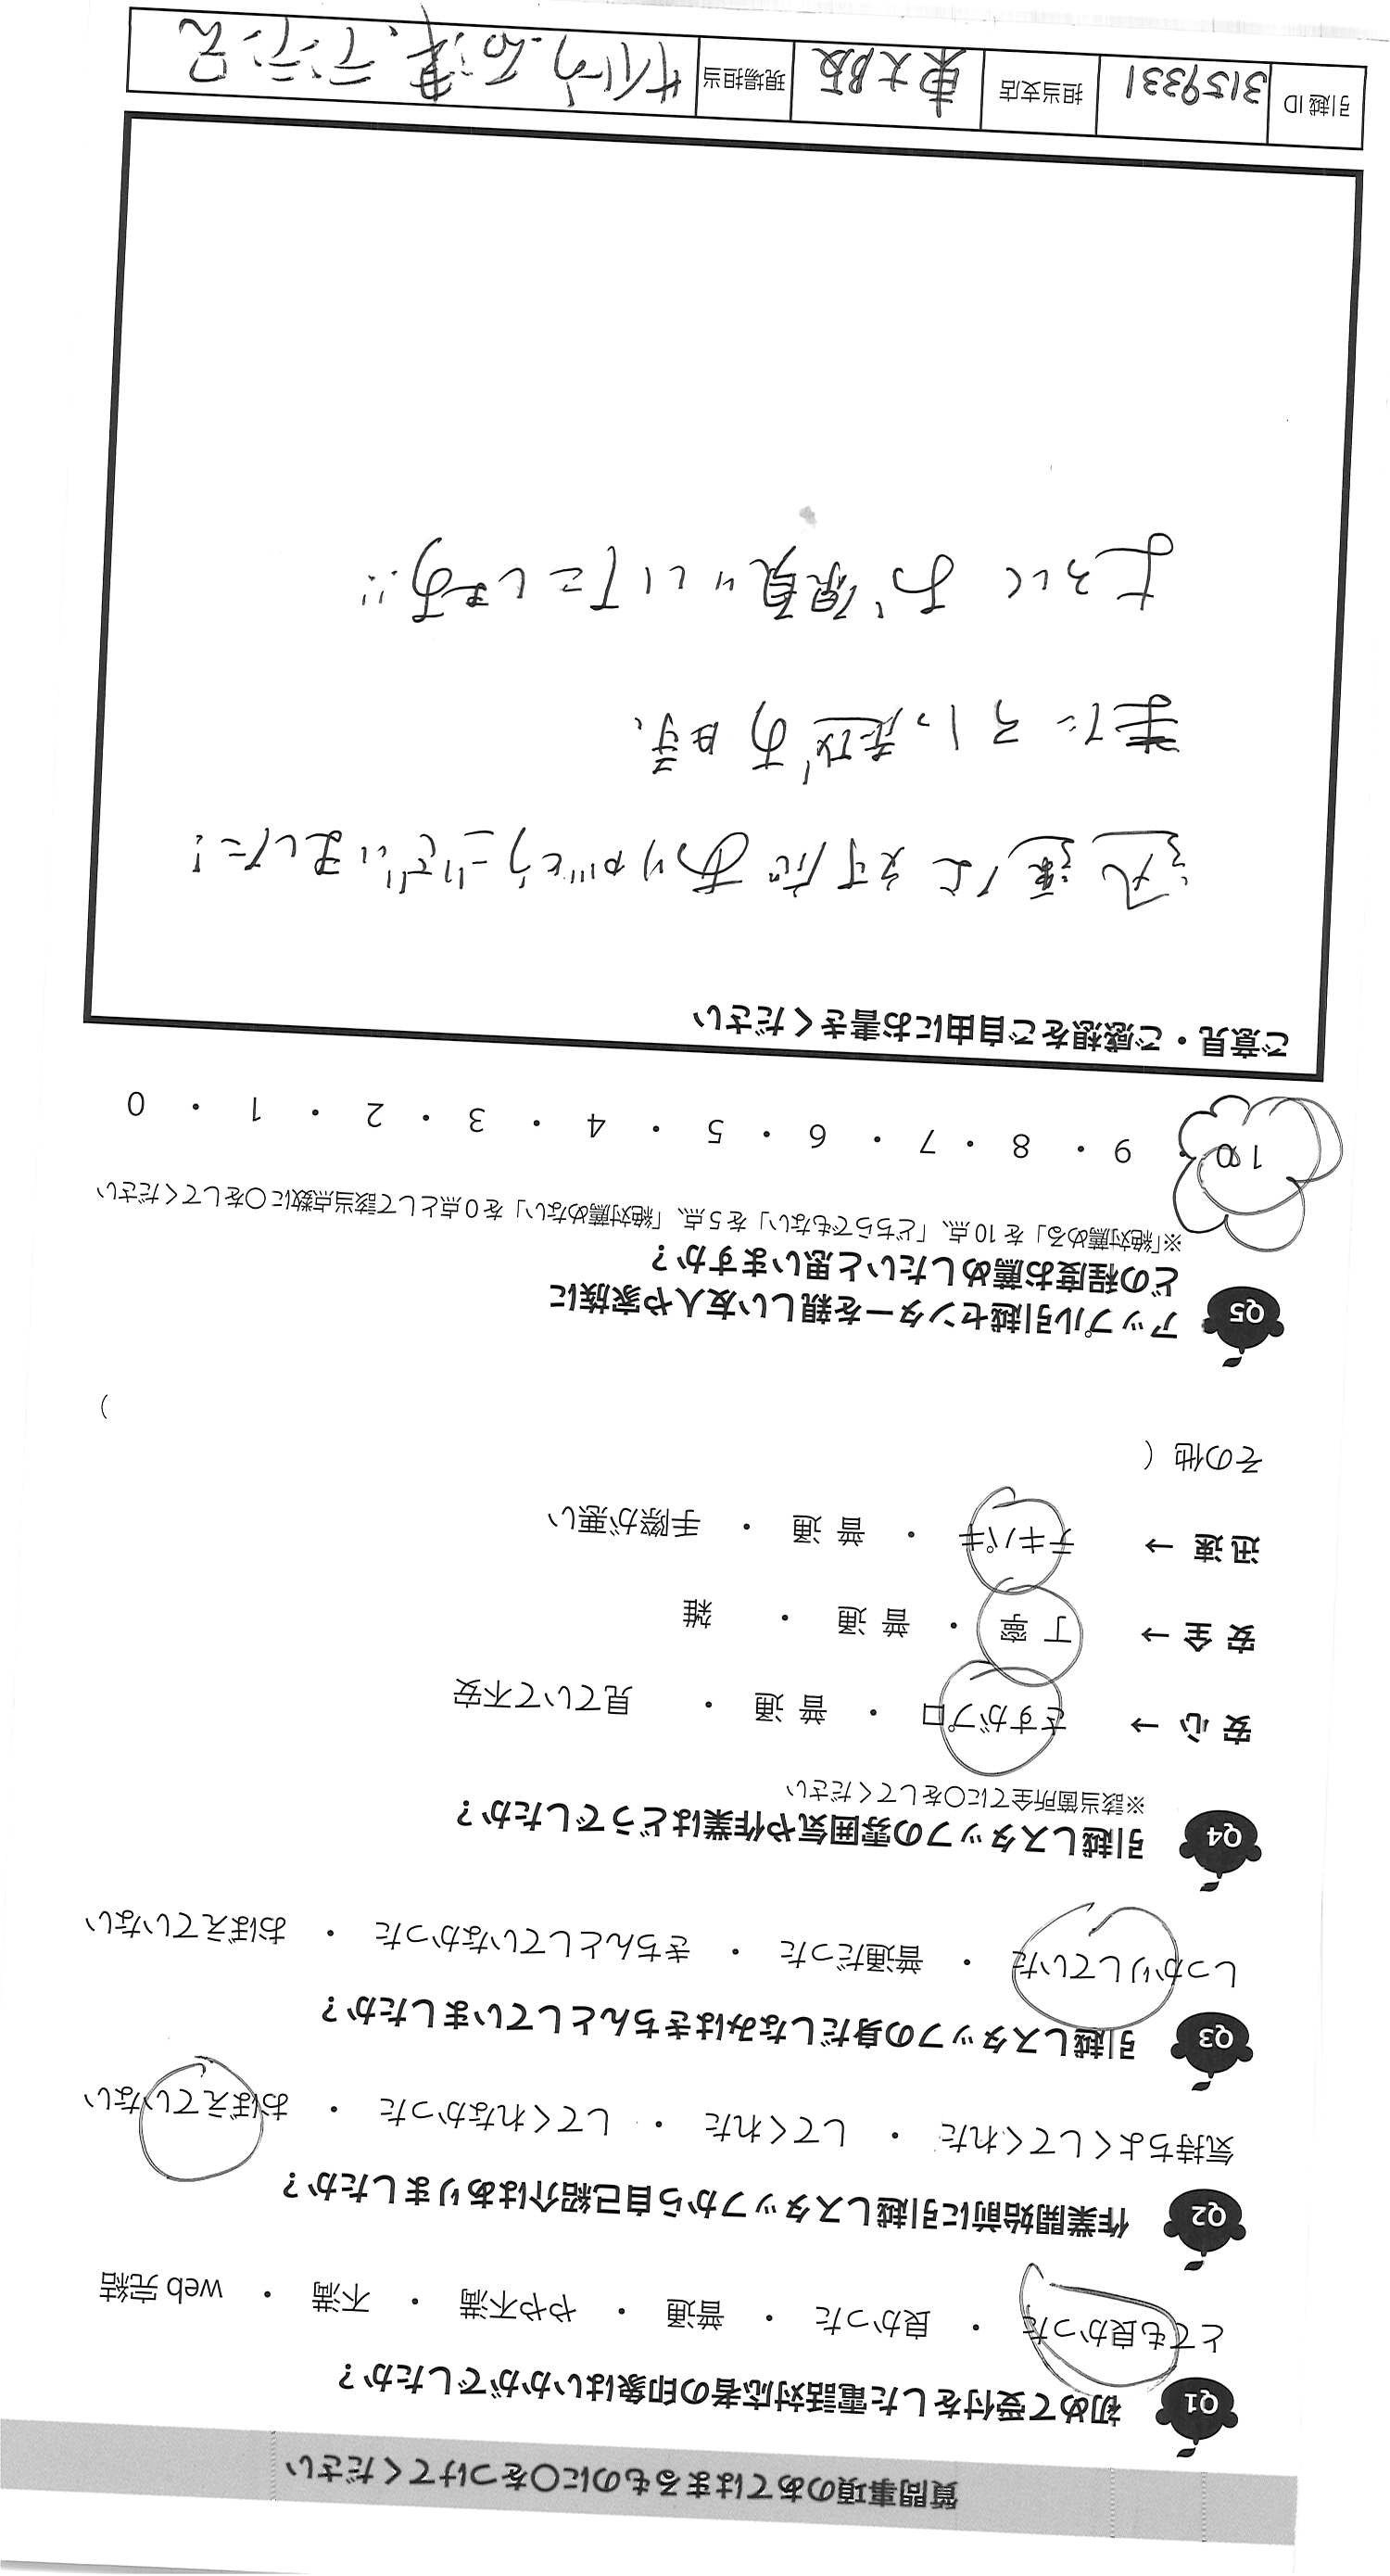 質問事項のあてはまるものに○をつけてください
Q1 初めて受付をした電話対応者の印象はいかがでしたか？
とても良かった ・ 良かった ・ 普通 ・ やや不満 ・ 不満 ・ web 完結
Q2 作業開始前に引越しスタッフから自己紹介はありましたか？
気持ちよくしてくれた ・ してくれた ・ してくれなかった ・ おぼえていない
Q3 引越しスタッフの身だしなみはきちんとしていましたか？
しっかりしていた ・ 普通だった ・ きちんとしていなかった ・ おぼえていない
Q4 引越しスタッフの雰囲気や作業はどうでしたか？
※該当箇所全てに○をしてください
安心 → さすがプロ ・ 普通 ・ 見ていて不安
安全 → 丁寧 ・ 普通 ・ 雑
迅速 → テキパキ ・ 普通 ・ 手際が悪い
その他（ ）
Q5 アップル引越センターを親しい友人や家族に
どの程度お薦めしたいと思いますか？
※「絶対薦める」を 10 点、「どちらでもない」を 5 点、「絶対薦めない」を 0 点として該当点数に○をしてください
10 ・ 9 ・ 8 ・ 7 ・ 6 ・ 5 ・ 4 ・ 3 ・ 2 ・ 1 ・ 0
ご意見・ご感想をご自由にお書きください
ありがとうございました！
また引っ越す時、
よろしくお願いいたします!!
引越 ID 3159331 担当支店 東大阪 現場担当